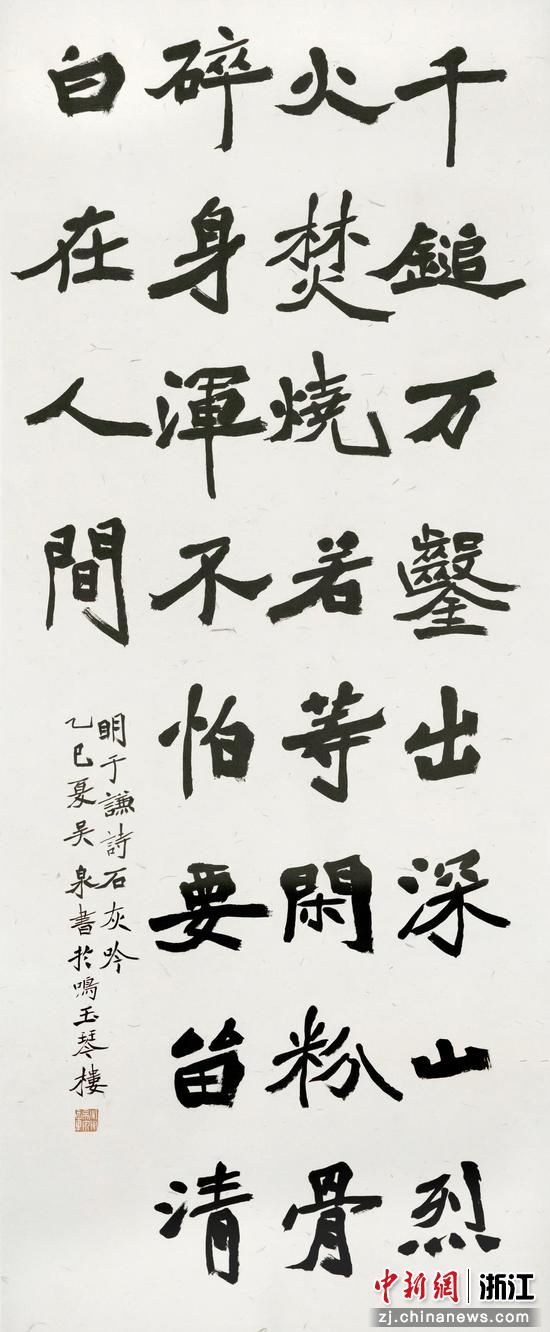 千鎚万鑿出深山烈
火焚燒若等閑粉骨
碎身渾不怕要留清
白在人間
明于謙詩石灰吟
乙巳夏吴泉書於鳴玉琴樓
中新網 浙江
zj.chinanews.com